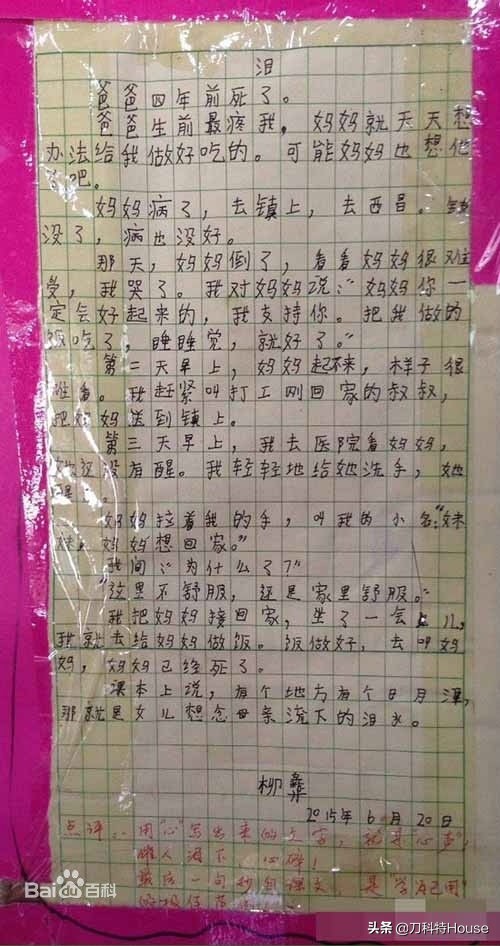 泪
爸爸四年前死了。
爸爸生前最疼我,妈妈就天天想
办法给我做好吃的。可能妈妈也想他
了吧。
妈妈病了,去镇上,去西昌。钱
没了,病也没好。
那天,妈妈倒了,看看妈妈很难
受,我哭了。我对妈妈说:“妈妈你一
定会好起来的,我支持你。把我做的
饭吃了,睡睡觉,就好了。”
第二天早上,妈妈起不来,样子很
难看。我赶紧叫打工刚回家的叔叔,
把妈妈送到镇上。
第三天早上,我去医院看妈妈,
她还没有醒。我轻轻地给她洗手,她
醒了。
妈妈拉着我的手,叫我的小名:“妹
妹,妈妈想回家。”
我问:“为什么了?”
“这里不舒服,还是家里舒服。”
我把妈妈接回家,坐了一会儿,
我就去给妈妈做饭。饭做好,去叫妈
妈,妈妈已经死了。
课本上说,有个地方有个日月潭,
那就是女儿想念母亲流下的泪水。
柳彝
2015年6月20日
点评:用“心”写出来的文字,就是“心声”,
催人泪下、心碎!
最后一句抄自课文,是“学为己用”
Bai百科
头条 @刀科特House